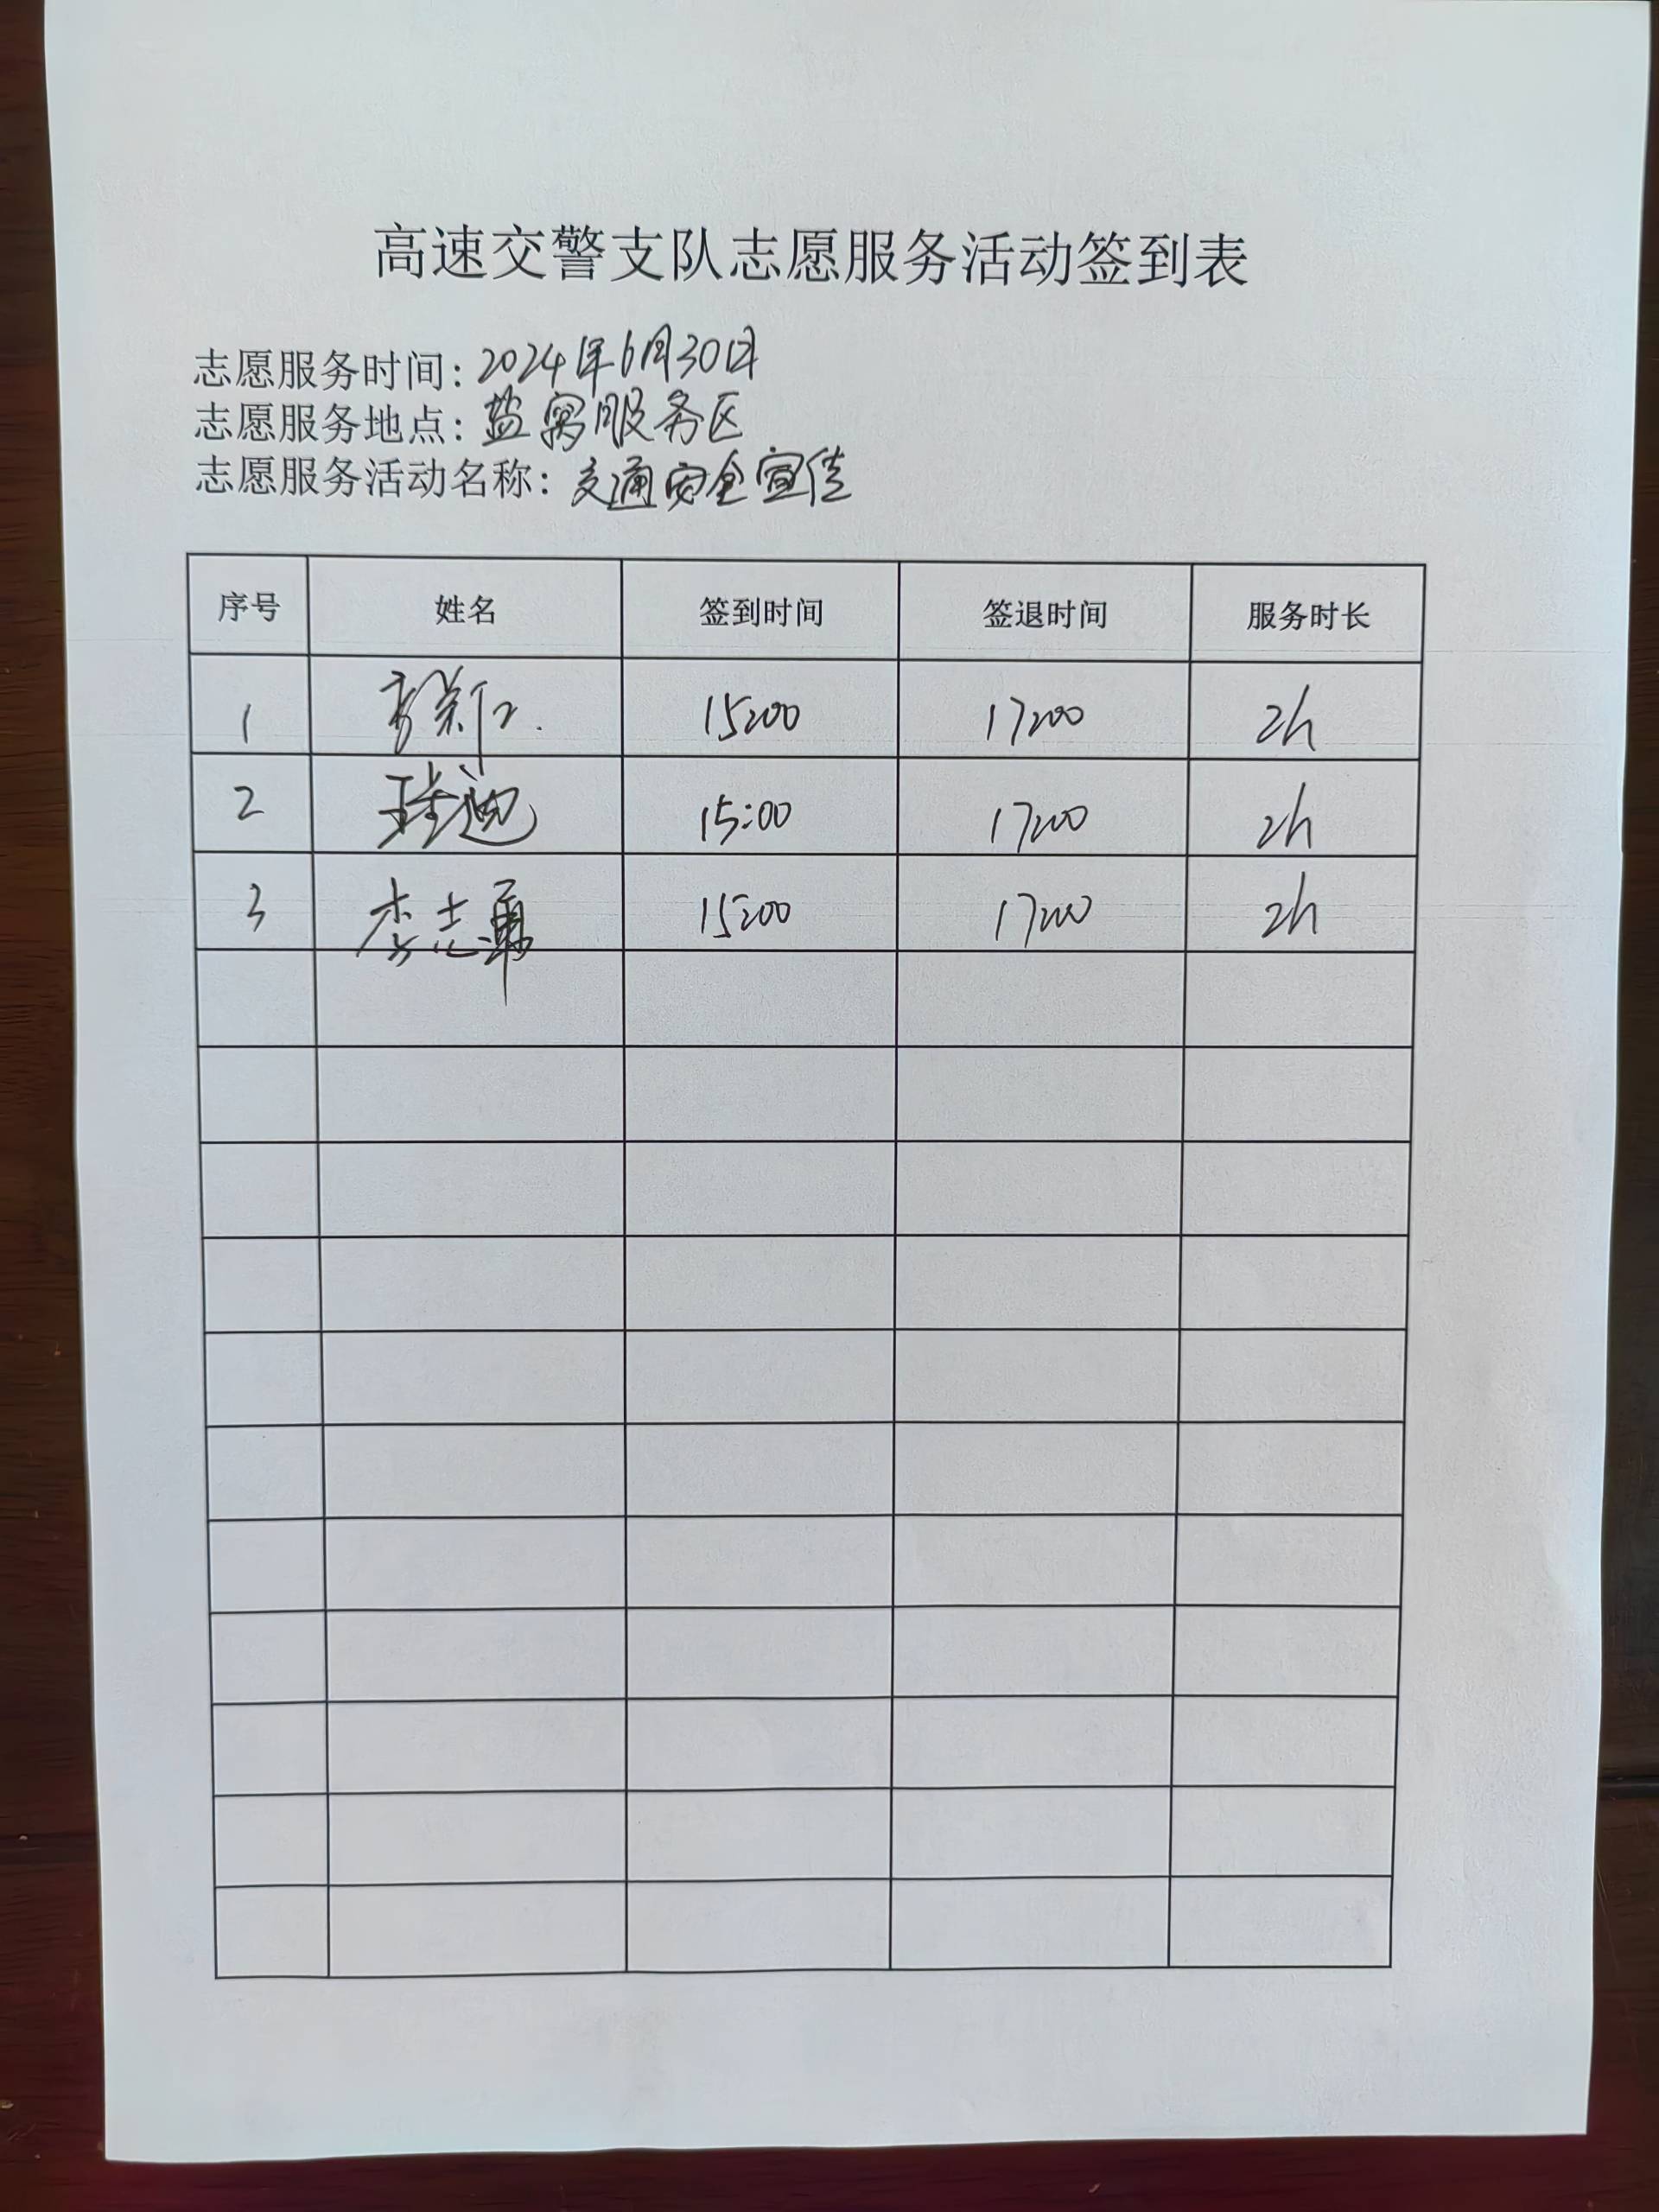 高速交警支队志愿服务活动签到表
志愿服务时间：2024年6月30日
志愿服务地点：盐窝服务区
志愿服务活动名称：交通安全宣传
序号 姓名 签到时间 签退时间 服务时长
1 15:00 17:00 2h
2 15:00 17:00 2h
3 李志 15:00 17:00 2h